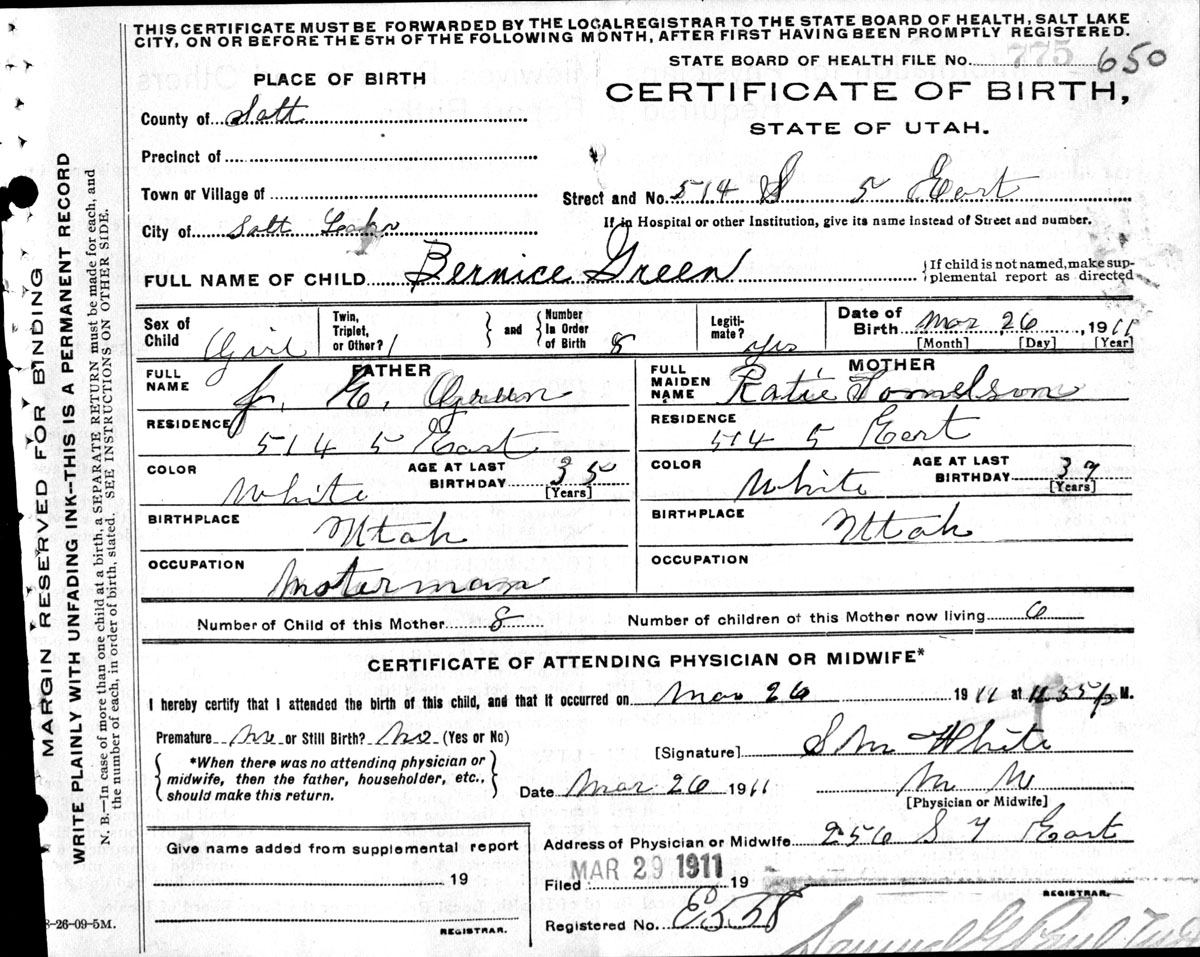 THIS CERTIFICATE MUST BE FORWARDED BY THE LOCAL REGISTRAR TO THE STATE BOARD OF HEALTH, SALT LAKE
CITY, ON OR BEFORE THE 5TH OF THE FOLLOWING MONTH, AFTER FIRST HAVING BEEN PROMPTLY REGISTERED.
STATE BOARD OF HEALTH FILE No. 775 650
PLACE OF BIRTH
CERTIFICATE OF BIRTH,
STATE OF UTAH.
County of Salt
Precinct of
Town or Village of
Street and No. 514 S 5 East
City of Salt Lake
If in Hospital or other Institution, give its name instead of Street and number.
FULL NAME OF CHILD Bernice Green
If child is not named, make sup-
plemental report as directed
Sex of Child Girl
Twin, Triplet, or Other? 1
and Number In Order of Birth 8
Legiti-mate? yes
Date of Birth Mar 26, 1911
[Month] [Day] [Year]
FATHER
FULL NAME J. E. Green
RESIDENCE 514 5 East
COLOR White
AGE AT LAST BIRTHDAY 35
[Years]
BIRTHPLACE Utah
OCCUPATION Moterman
MOTHER
FULL MAIDEN NAME Katie
RESIDENCE 514 5 East
COLOR White
AGE AT LAST BIRTHDAY 37
[Years]
BIRTHPLACE Utah
OCCUPATION
Number of Child of this Mother 8 Number of children of this Mother now living 6
CERTIFICATE OF ATTENDING PHYSICIAN OR MIDWIFE*
I hereby certify that I attended the birth of this child, and that it occurred on Mar 26 1911 at 11.55 p M.
Premature No or Still Birth? No (Yes or No)
[Signature] S M White
*When there was no attending physician or
midwife, then the father, householder, etc.,
should make this return.
Date Mar 26 1911
[Physician or Midwife]
Give name added from supplemental report
19
REGISTRAR.
Address of Physician or Midwife 256 S 7 East
Filed MAR 29 1911 19
REGISTRAR.
Registered No.
Samuel G Paul
MARGIN RESERVED FOR BINDING
WRITE PLAINLY WITH UNFADING INK--THIS IS A PERMANENT RECORD
N. B.—In case of more than one child at a birth, a SEPARATE RETURN must be made for each, and
the number of each, in order of birth, stated. SEE INSTRUCTIONS ON OTHER SIDE.
-26-09-5M.